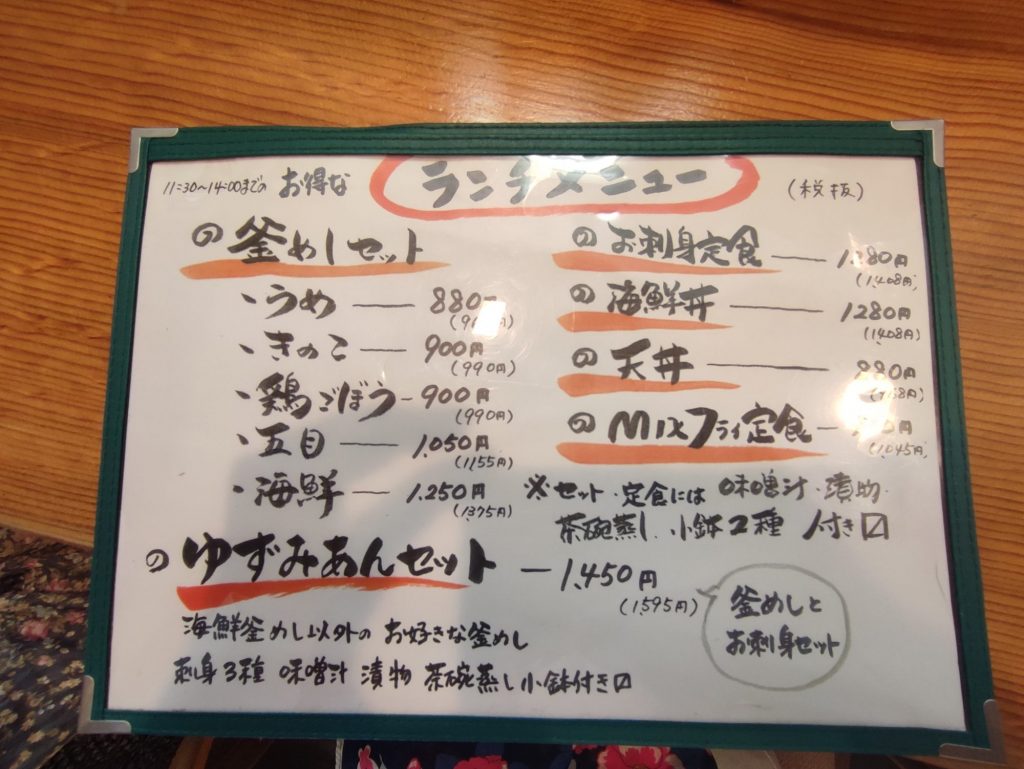 11:30~14:00までの お得な ランチメニュー (税抜)
の 釜めしセット
・うめ — 880円
・きのこ — 900円
(990円)
・鶏ごぼう - 900円
(990円)
・五目 — 1,050円
(1,155円)
・海鮮 — 1,250円
(1,375円)
の お刺身定食 — 1,280円
(1,408円)
の 海鮮丼 — 1280円
(1408円)
の 天丼 — 880円
の Mixフライ定食 —
(1,045円)
※セット・定食には 味噌汁・漬物
茶碗蒸し 小鉢2種 付き〼
の ゆずみあんセット — 1,450円
(1,595円)
釜めしと
お刺身セット
海鮮釜めし以外の お好きな釜めし
刺身3種 味噌汁 漬物 茶碗蒸し 小鉢付き〼